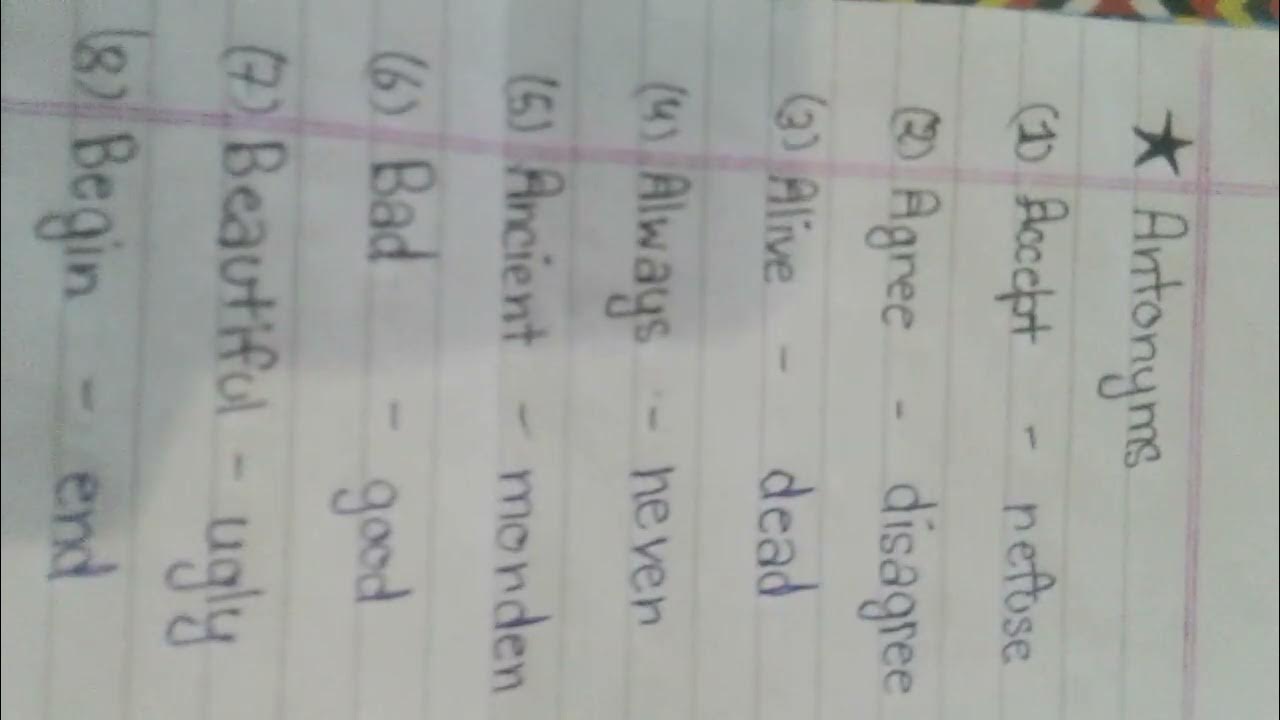 ★ Antonyms
(1) Accept - refuse
(2) Agree - disagree
(3) Alive - dead
(4) Always - never
(5) Ancient - monden
(6) Bad - good
(7) Beautiful - ugly
(8) Begin - end